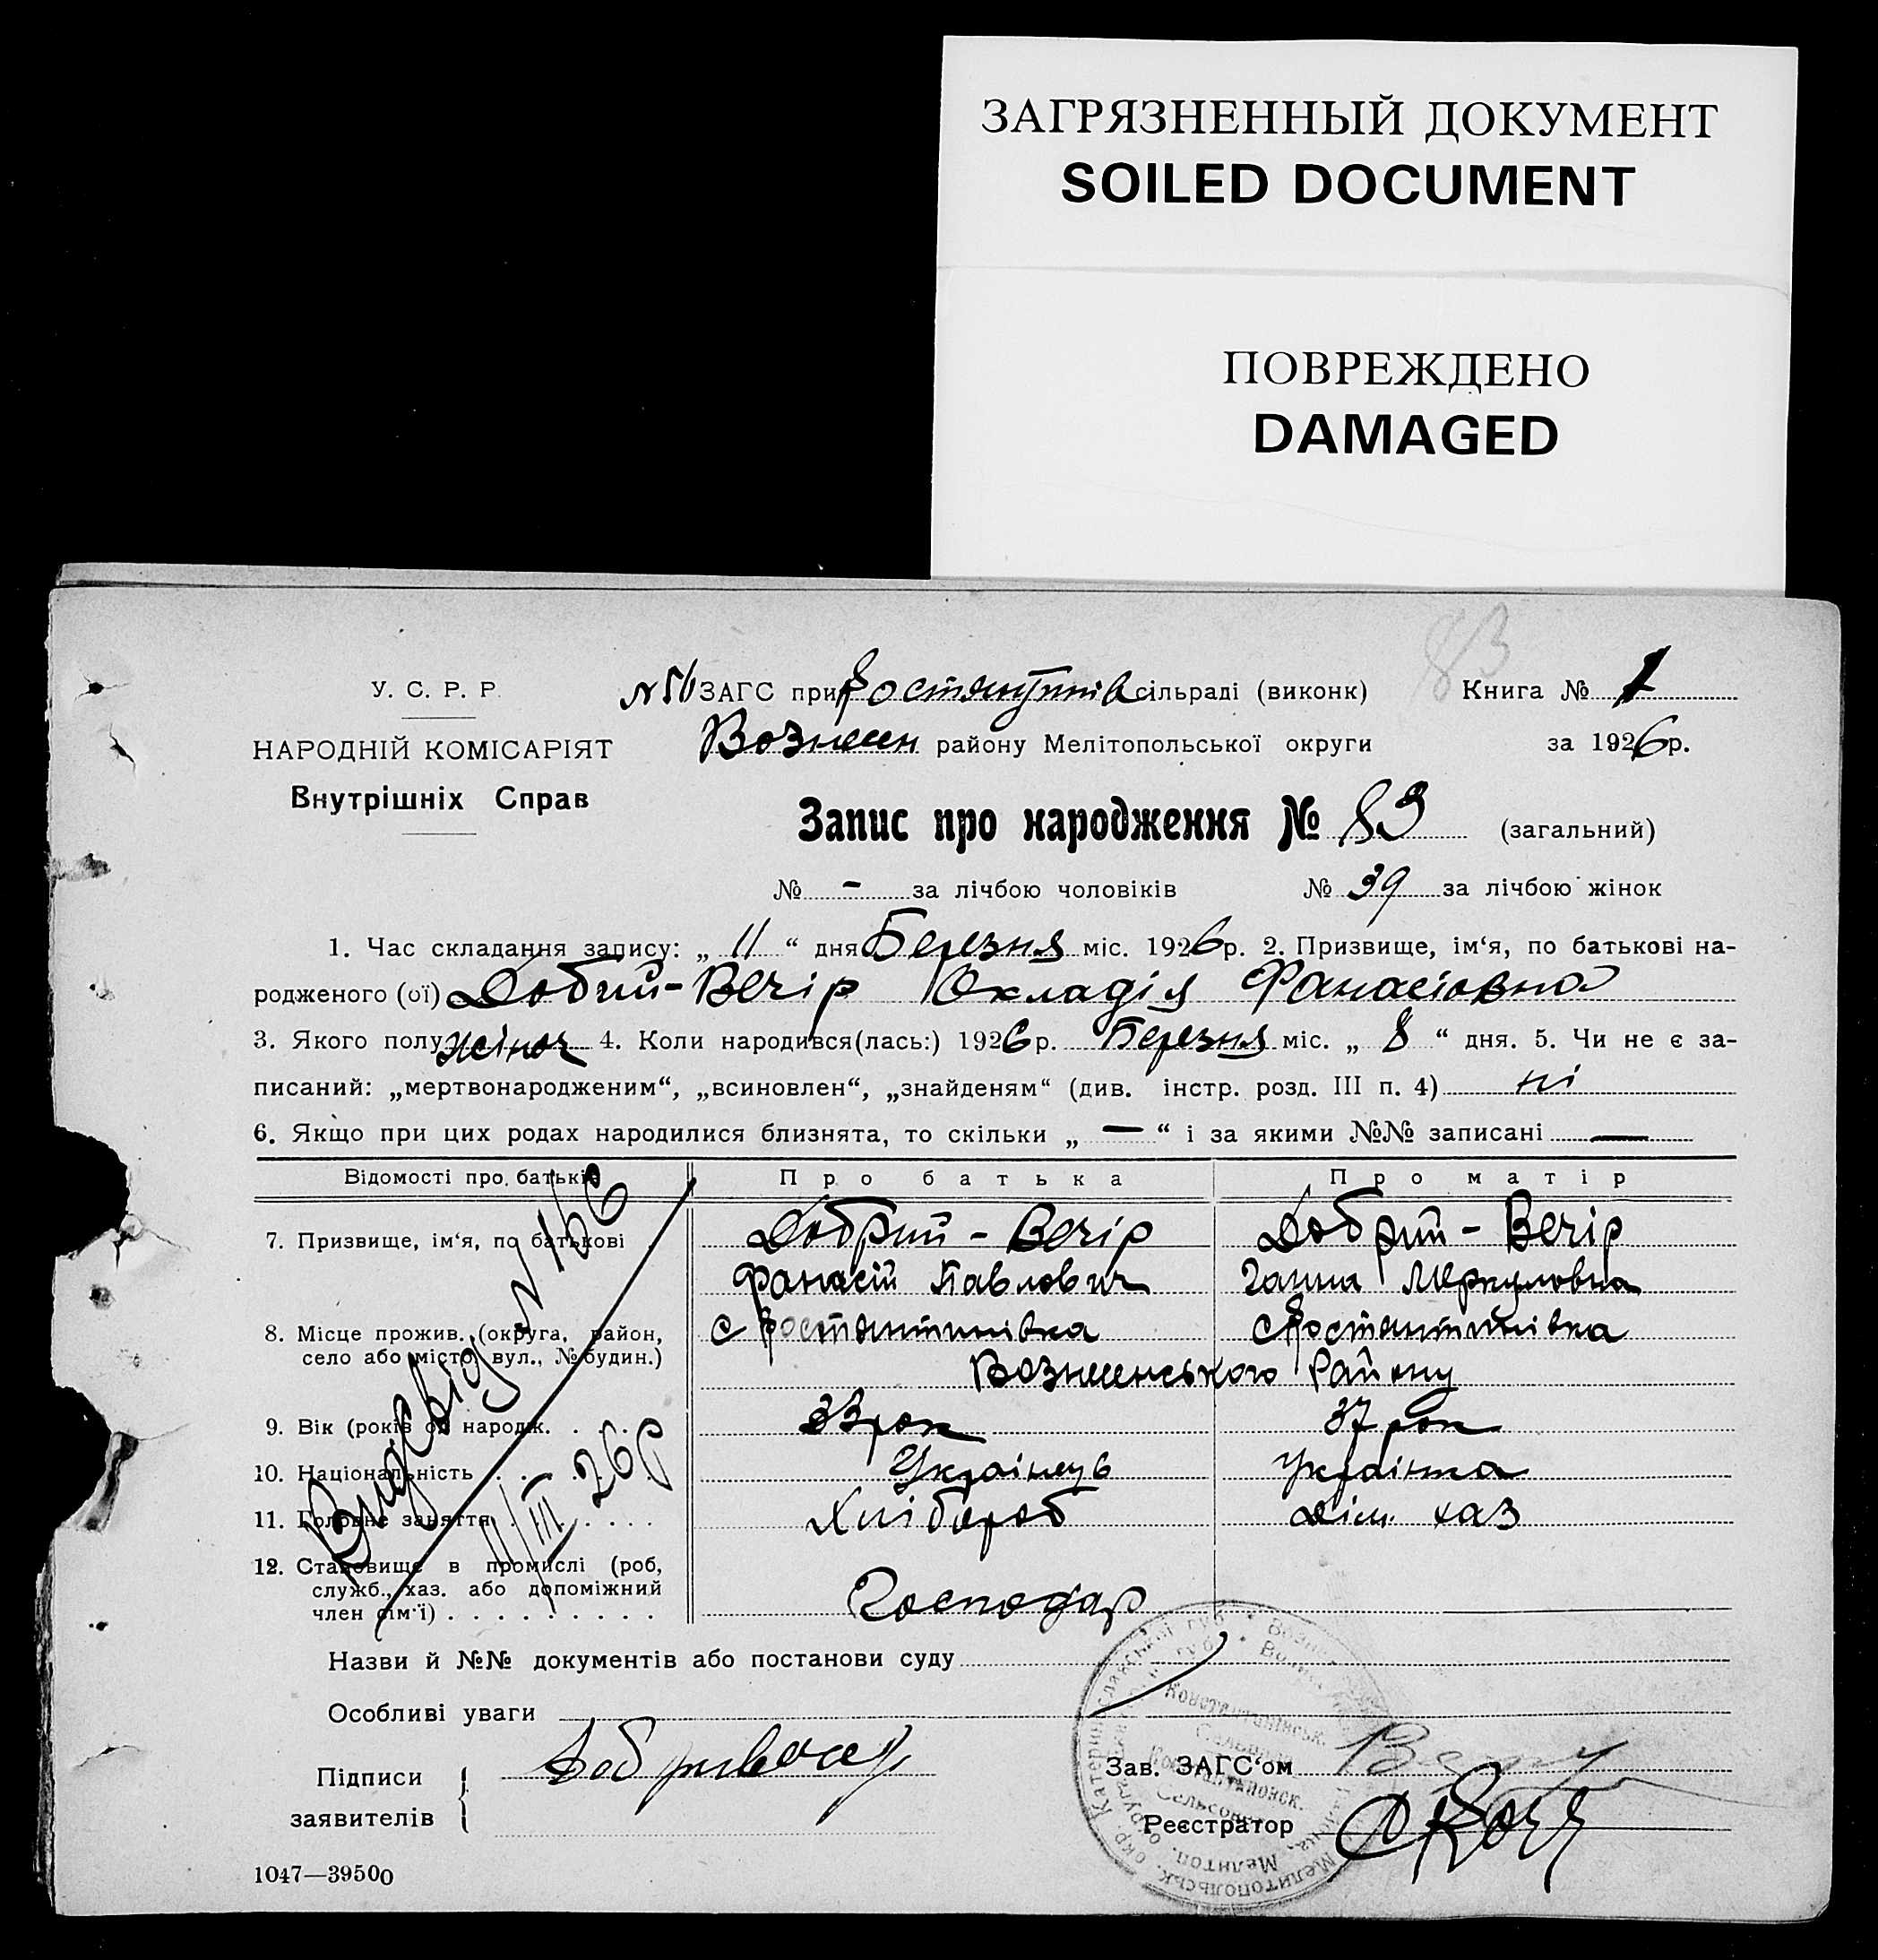 ЗАГРЯЗНЕННЫЙ ДОКУМЕНТ
SOILED DOCUMENT
ПОВРЕЖДЕНО
DAMAGED
83
У. С. Р. Р.
НАРОДНІЙ КОМІСАРІЯТ
Внутрішніх Справ
ЗАГС при сільраді (виконк) Книга № 1
Вознесен району Мелітопольської округи за 1926 р.
Запис про народження № 83 (загальний)
№ - за лічбою чоловіків № 39 за лічбою жінок
1. Час складання запису: „ 11 “ дня Березня міс. 1926 р. 2. Призвище, ім‘я, по батькові на-
родженого (ої) Добрий-Вечір Окладія Фанасіовна
3. Якого полу жіноч 4. Коли народився(лась:) 1926 р. Березня міс. „ 8 “ дня. 5. Чи не є за-
писаний: „мертвонародженим“, „всиновлен“, „знайденям“ (див. інстр. розд. III п. 4) ні
6. Якщо при цих родах народилися близнята, то скільки „ — “ і за якими №№ записані —
Відомості про батьків Про батька Про матір
7. Призвище, ім‘я, по батькові Добрий - Вечір Добрий - Вечір
Фанасій Павлович Ганна Меркуловна
8. Місце прожив. (округа, район, с Костянтинівка с Костянтинівка
село або місто, вул., № будин.)
Вознесенського Району
9. Вік (років од народж. 33 рок 37 рок
10. Національність Українець Українка
11. Головне заняття Хлібороб Дім. хаз
12. Становище в промислі (роб,
служб., хаз. або допоміжний
член сім‘ї) Господар
N 166
11/III 26р
Назви й №№ документів або постанови суду
Особливі уваги
Підписи
заявителів
Добривечер
Зав. ЗАГС‘ом
Реєстратор
1047—39500